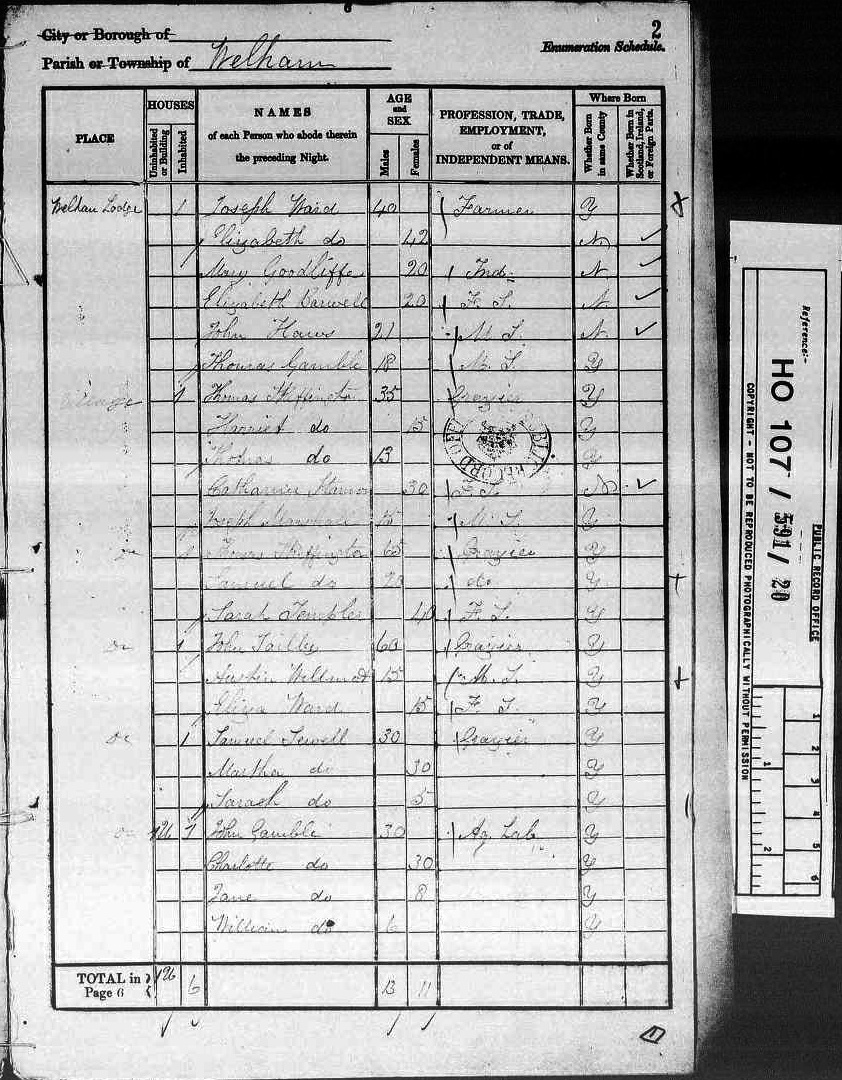 6
City or Borough of
Parish or Township of Welham
2
Enumeration Schedule.
PLACE
HOUSES
Uninhabited or Building
Inhabited
NAMES
of each Person who abode therein
the preceding Night.
AGE
and
SEX
Males
Females
PROFESSION, TRADE,
EMPLOYMENT,
or of
INDEPENDENT MEANS.
Where Born
Whether Born in same County
Whether Born in Scotland, Ireland, or Foreign Parts.
Welham Lodge 1 Joseph Ward 40 Farmer Y
Elizabeth do 42 N ✓
Mary Goodliffe 20 Ind. N ✓
Elizabeth Barwell 20 F. S. N ✓
John Haws 21 M. S. N ✓
Thomas Gamble 18 M. S. Y
1 Thomas Heffington 35 Grazier Y
Harriet do 15 Y
Thomas do 13 Y
Catharine 30 F. S. N ✓
Joseph 15 M. S. Y
do 1 Thomas Heffington 65 Grazier Y
Samuel do 20 do Y
Sarah Temple 40 F. S. Y
do 1 John Tailby 60 Grazier Y
Austin 15 M. S. Y
Eliza Ward 15 F. S. Y
do 1 Samuel Sewell 30 Grazier Y
Martha do 30 Y
Sarah do 5 Y
do 1 John Gamble 30 Ag. Lab Y
Charlotte do 30 Y
Jane do 8 Y
William do 6 Y
TOTAL in
Page 6
6 13 11
PUBLIC RECORD OFFICE
Reference:-
HO 107 / 591 / 20
PUBLIC RECORD OFFICE
COPYRIGHT - NOT TO BE REPRODUCED PHOTOGRAPHICALLY WITHOUT PERMISSION
1
2
3
4
5
6
1
2